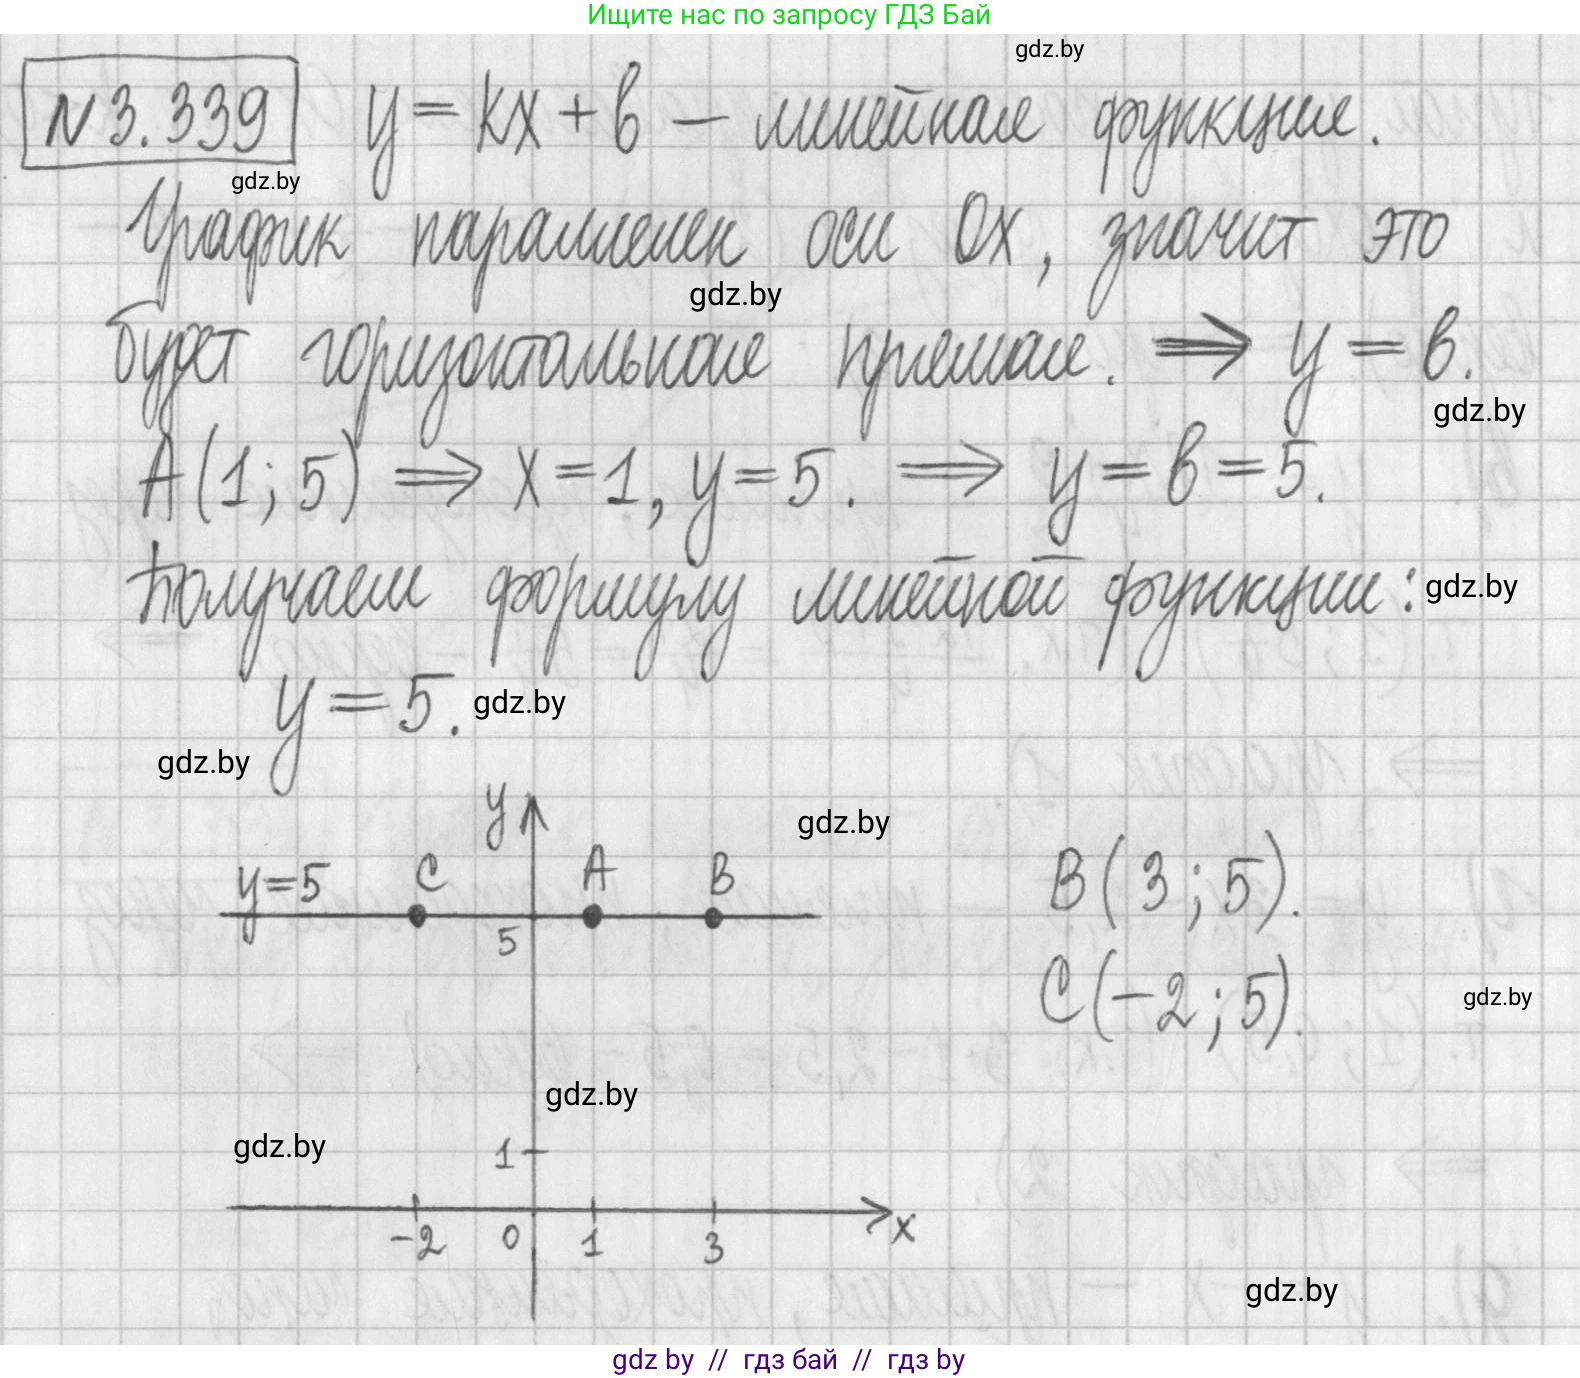 Ищите нас по запросу ГДЗ Бай
gdz.by
N 3.339 y = kx + b – линейная функция.
gdz.by
График параллелен оси Ox, значит это
gdz.by
будет горизонтальная прямая. ⇒ y = b.
gdz.by
A(1; 5) ⇒ x = 1, y = 5. ⇒ y = b = 5.
Получаем формулу линейной функции: gdz.by
y = 5. gdz.by
gdz.by
y
gdz.by
y=5 C A B
B(3; 5).
5
C(-2; 5).
gdz.by
gdz.by
gdz.by
1
-2 0 1 3 x
gdz.by
gdz by // гдз бай // гдз by